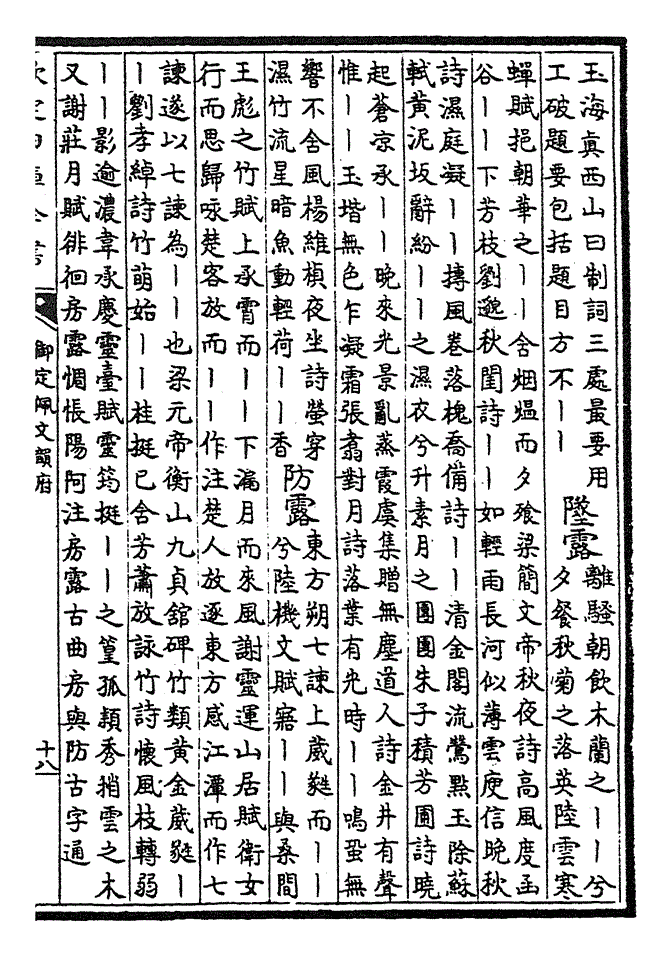 玉海真西山曰制詞三處最要用
工破題要包括題目方不丨丨
墜露
離騷朝飲木蘭之丨丨兮
夕餐秋菊之落英陸雲寒
蟬賦挹朝華之丨丨含烟熅而夕飱梁簡文帝秋夜詩高風度函
谷丨丨下芳枝劉邈秋閨詩丨丨如輕雨長河似薄雲庾信晚秋
詩濕庭凝丨丨摶風卷落槐喬備詩丨丨清金閣流鶯點玉除蘇
軾黃泥坂辭紛丨丨之濕衣兮升素月之團團朱子積芳圃詩曉
起蒼凉承丨丨晚來光景亂蒸霞虞集贈無塵道人詩金井有聲
惟丨丨玉堦無色乍凝霜張翥對月詩落葉有光時丨丨鳴蛩無
響不舍風楊維楨夜坐詩螢穿
濕竹流星暗魚動輕荷丨丨香
防露
東方朔七諫上葳蕤而丨丨
兮陸機文賦寤丨丨與桑間
王彪之竹賦上承霄而丨丨下漏月而來風謝靈運山居賦衛女
行而思歸咏楚客放而丨丨作注楚人放逐東方感江潭而作七
諫遂以七諫為丨丨也梁元帝衡山九貞舘碑竹類黃金葳蕤丨
丨劉孝綽詩竹萌始丨丨桂挺已含芳蕭放詠竹詩懷風枝轉弱
丨丨影逾濃韋承慶靈臺賦靈筠挺丨丨之篁孤穎秀捎雲之木
又謝莊月賦徘徊房露惆悵陽阿注房露古曲房與防古字通
欽定四庫全書
御定佩文韻府
十八